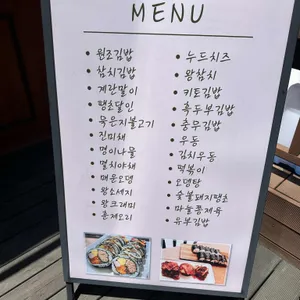 MENU
원조김밥
참치김밥
계란말이
땡초달인
묵은지불고기
진미채
명이나물
멸치야채
매운오뎅
왕소세지
왕크래미
훈제오리
누드치즈
왕참치
키토김밥
흑두부김밥
충무김밥
우동
김치우동
떡볶이
오뎅탕
숯불돼지땡초
마늘쫑제육
유부김밥